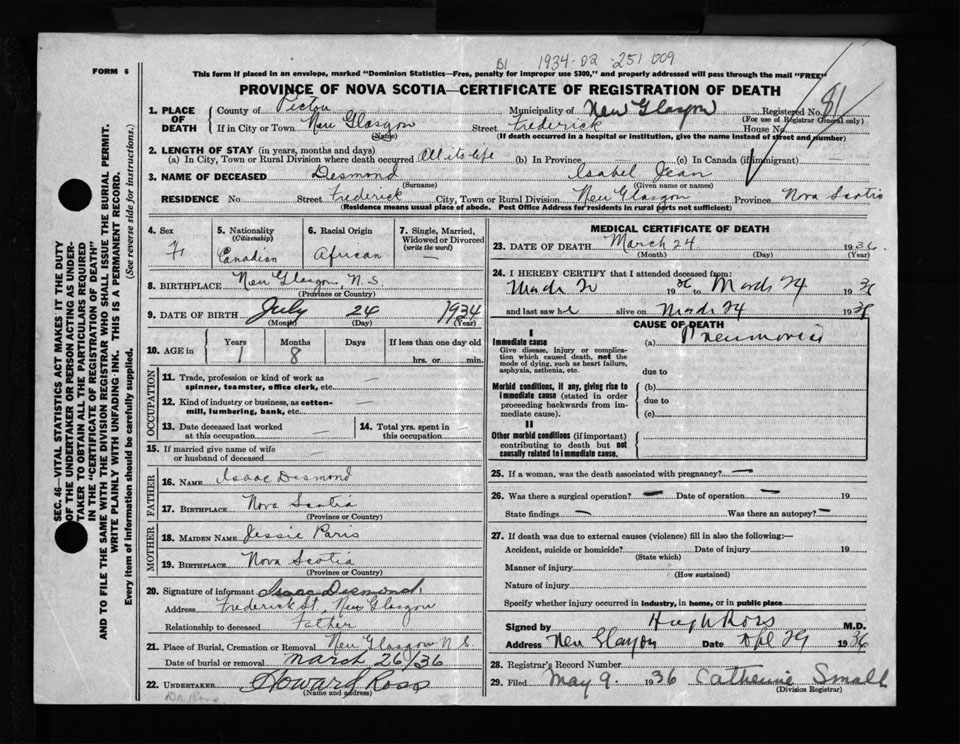 B1 1934-02-251009
FORM 6
This form if placed in an envelope, marked "Dominion Statistics—Free, penalty for improper use $300," and properly addressed will pass through the mail "FREE"
PROVINCE OF NOVA SCOTIA—CERTIFICATE OF REGISTRATION OF DEATH
1. PLACE OF DEATH
County of Pictou Municipality of New Glasgow Registered No. 81
(For use of Registrar General only)
If in City or Town New Glasgow Street Frederick House No.
(Name) (If death occurred in a hospital or institution, give the name instead of street and number)
2. LENGTH OF STAY (in years, months and days)
(a) In City, Town or Rural Division where death occurred All its life (b) In Province (c) In Canada (if immigrant)
3. NAME OF DECEASED Desmond Isabel Jean
(Surname) (Given name or names)
RESIDENCE No. Street Frederick City, Town or Rural Division New Glasgow Province Nova Scotia
(Residence means usual place of abode. Post Office Address for residents in rural parts not sufficient)
4. Sex F
5. Nationality (Citizenship) Canadian
6. Racial Origin African
7. Single, Married, Widowed or Divorced (write the word) —
8. BIRTHPLACE New Glasgow, N.S.
(Province or Country)
9. DATE OF BIRTH July 24 1934
(Month) (Day) (Year)
10. AGE in Years Months Days If less than one day old
1 8 hrs. or min.
OCCUPATION
11. Trade, profession or kind of work as spinner, teamster, office clerk, etc. —
12. Kind of industry or business, as cotton-mill, lumbering, bank, etc. —
13. Date deceased last worked at this occupation —
14. Total yrs. spent in this occupation
15. If married give name of wife or husband of deceased —
FATHER
16. NAME Isaac Desmond
17. BIRTHPLACE Nova Scotia
(Province or Country)
MOTHER
18. MAIDEN NAME Jessie Paris
19. BIRTHPLACE Nova Scotia
(Province or Country)
20. Signature of informant Isaac Desmond
Address Frederick St, New Glasgow
Relationship to deceased Father
21. Place of Burial, Cremation or Removal New Glasgow N.S.
Date of burial or removal March 26/36
22. UNDERTAKER Howard Ross
(Name and address)
Dr Ross
MEDICAL CERTIFICATE OF DEATH
23. DATE OF DEATH March 24 1936
(Month) (Day) (Year)
24. I HEREBY CERTIFY that I attended deceased from:
March 1936 to March 24 1936
and last saw her alive on March 24 1936
CAUSE OF DEATH
I
Immediate cause (a) Pneumonia
Give disease, injury or complication which caused death, not the mode of dying, such as heart failure, asphyxia, asthenia, etc.
due to
Morbid conditions, if any, giving rise to immediate cause (stated in order proceeding backwards from immediate cause).
(b)
due to
(c)
II
Other morbid conditions (if important) contributing to death but not causally related to immediate cause.
25. If a woman, was the death associated with pregnancy? —
26. Was there a surgical operation? — Date of operation — 19
State findings — Was there an autopsy? —
27. If death was due to external causes (violence) fill in also the following:—
Accident, suicide or homicide? Date of injury 19
(State which)
Manner of injury
(How sustained)
Nature of injury
Specify whether injury occurred in industry, in home, or in public place
Signed by Hugh Ross M.D.
Address New Glasgow Date Apl 29 1936
28. Registrar's Record Number
29. Filed May 9 1936 Catherine Small
(Division Registrar)
SEC. 46—VITAL STATISTICS ACT MAKES IT THE DUTY
OF THE UNDERTAKER OR PERSON ACTING AS UNDER-
TAKER TO OBTAIN ALL THE PARTICULARS REQUIRED
IN THE "CERTIFICATE OF REGISTRATION OF DEATH"
AND TO FILE THE SAME WITH THE DIVISION REGISTRAR WHO SHALL ISSUE THE BURIAL PERMIT.
WRITE PLAINLY WITH UNFADING INK. THIS IS A PERMANENT RECORD.
Every item of information should be carefully supplied. (See reverse side for instructions.)